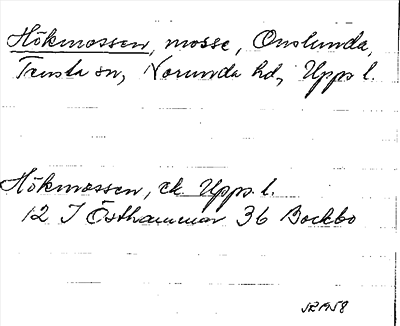 Hökmossen, mosse, Onslunda,
Tensta sn, Norunda hd, Upps l.
Hökmossen, ek. Upps. l.
12 I Östhammar 36 Bockbo